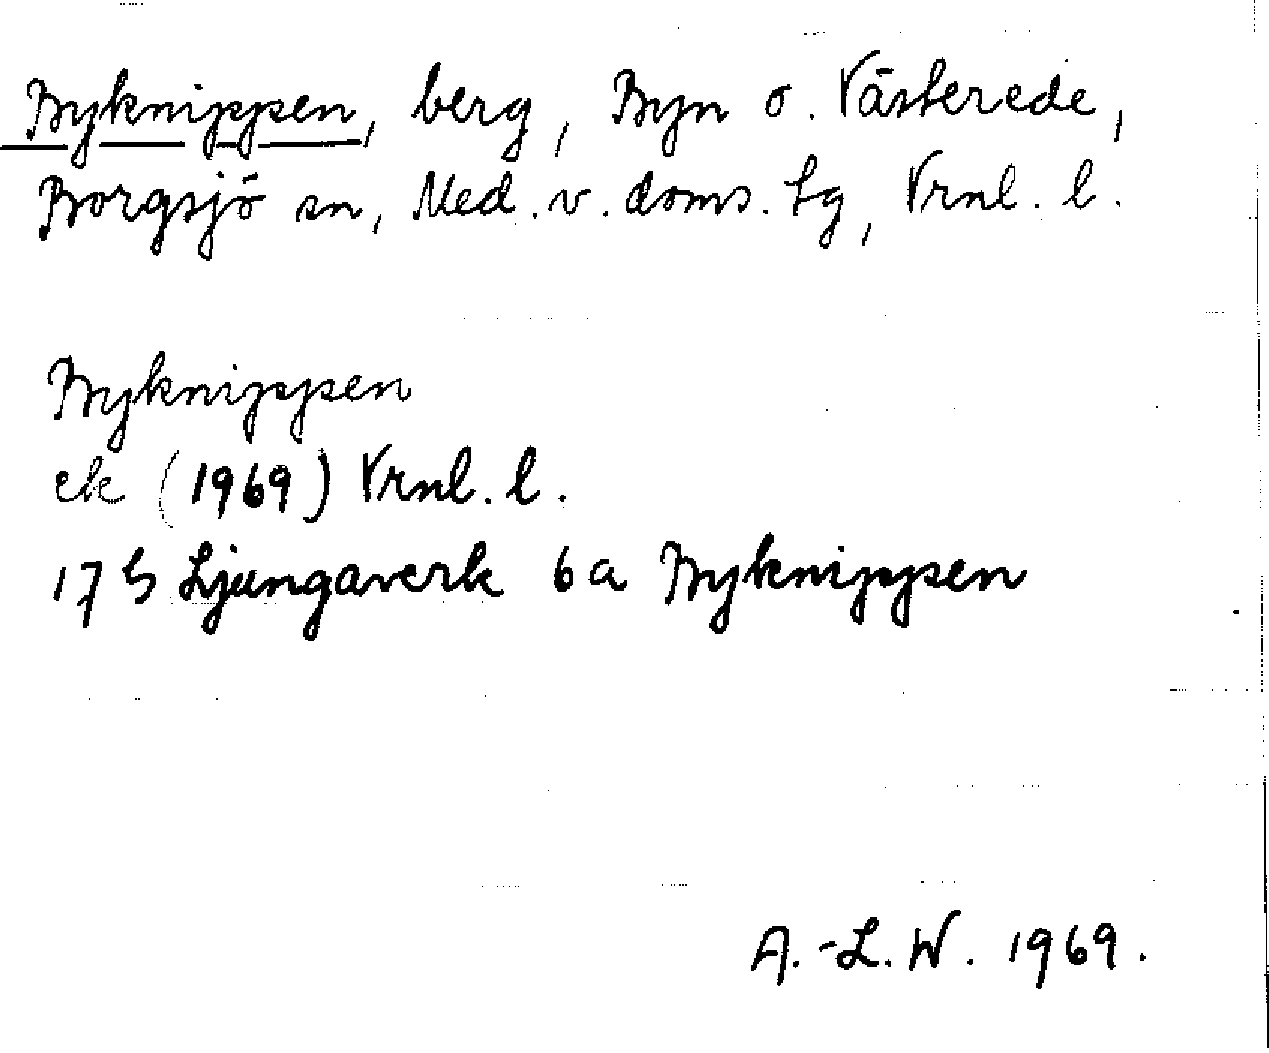 Byknippen, berg, Byn o. Västerede,
Borgsjö sn, Med. v. doms. tg, Vrnl. l.
Byknippen
ek (1969) Vrnl. l.
17 G Ljungaverk 6 a Byknippen
A.-L. W. 1969.